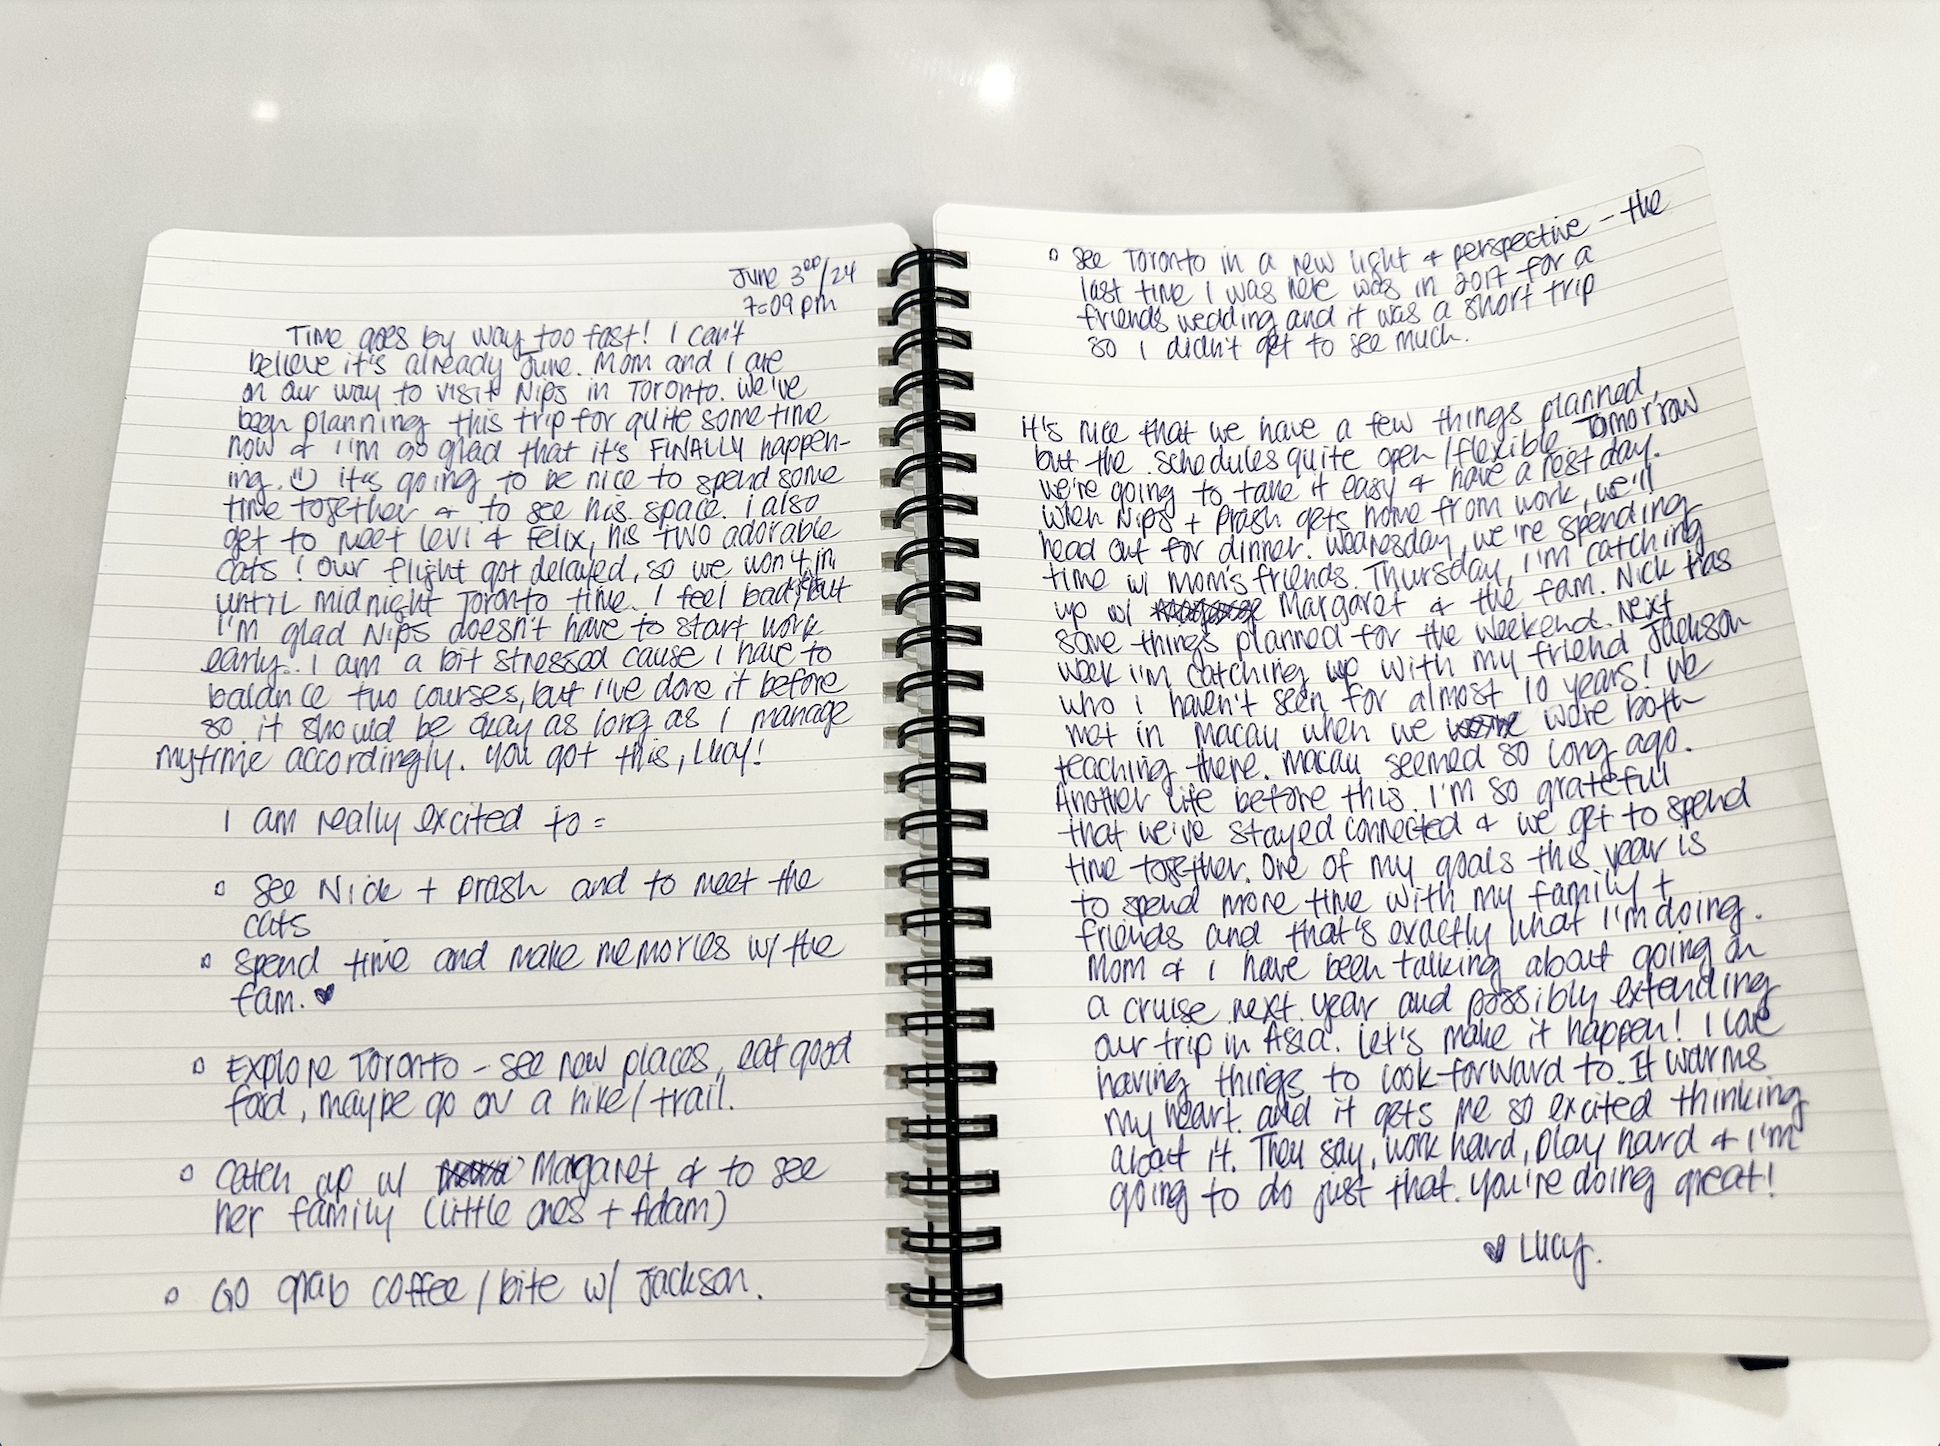 June 3RD/24
7:09 pm
Time goes by way too fast! I can't
believe it's already June. Mom and I are
on our way to visit Nips in Toronto. We've
been planning this trip for quite some time
now & I'm so glad that it's FINALLY happen-
ing. It's going to be nice to spend some
time together & to see his space. I also
get to meet Levi & Felix, his two adorable
cats! Our flight got delayed, so we won't in
until midnight Toronto time. I feel bad, but
I'm glad Nips doesn't have to start work
early. I am a bit stressed cause I have to
balance two courses, but I've done it before
so it should be okay as long as I manage
my time accordingly. You got this, Lucy!
I am really excited to:
See Nick + Prash and to meet the
cats
Spend time and make memories w/ the
fam. ♥
Explore Toronto - see new places, eat good
food, maybe go on a hike/trail.
Catch up w/ Margaret & to see
her family (little ones + Adam)
Go grab coffee/bite w/ Jackson.
See Toronto in a new light & perspective - the
last time I was here was in 2017 for a
friends wedding and it was a short trip
so I didn't get to see much.
It's nice that we have a few things planned,
but the schedules quite open/flexible. Tomorrow
we're going to take it easy & have a rest day.
When Nips + Prash gets home from work, we'll
head out for dinner. Wednesday, we're spending
time w/ mom's friends. Thursday, I'm catching
up w/ Margaret & the fam. Nick has
some things planned for the weekend. Next
week I'm catching up with my friend Jackson
who I haven't seen for almost 10 years! We
met in Macau when we were both
teaching there. Macau seemed so long ago.
Another life before this. I'm so grateful
that we've stayed connected & we get to spend
time together. One of my goals this year is
to spend more time with my family +
friends and that's exactly what I'm doing.
Mom & I have been talking about going on
a cruise next year and possibly extending
our trip in Asia. Let's make it happen! I love
having things to look forward to. It warms
my heart and it gets me so excited thinking
about it. They say, work hard, play hard & I'm
going to do just that. You're doing great!
♥ Lucy.